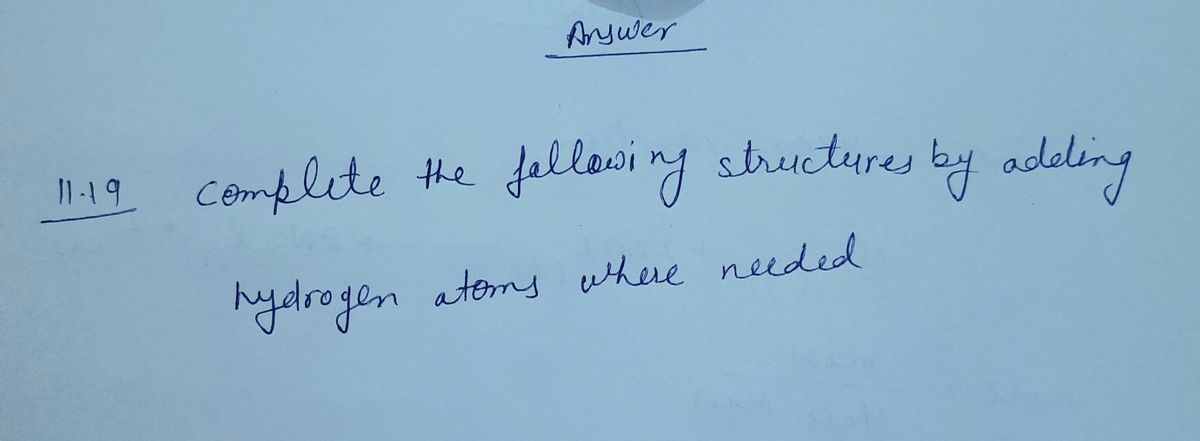 Answer
11.19 complete the following structures by adding
hydrogen atoms where needed